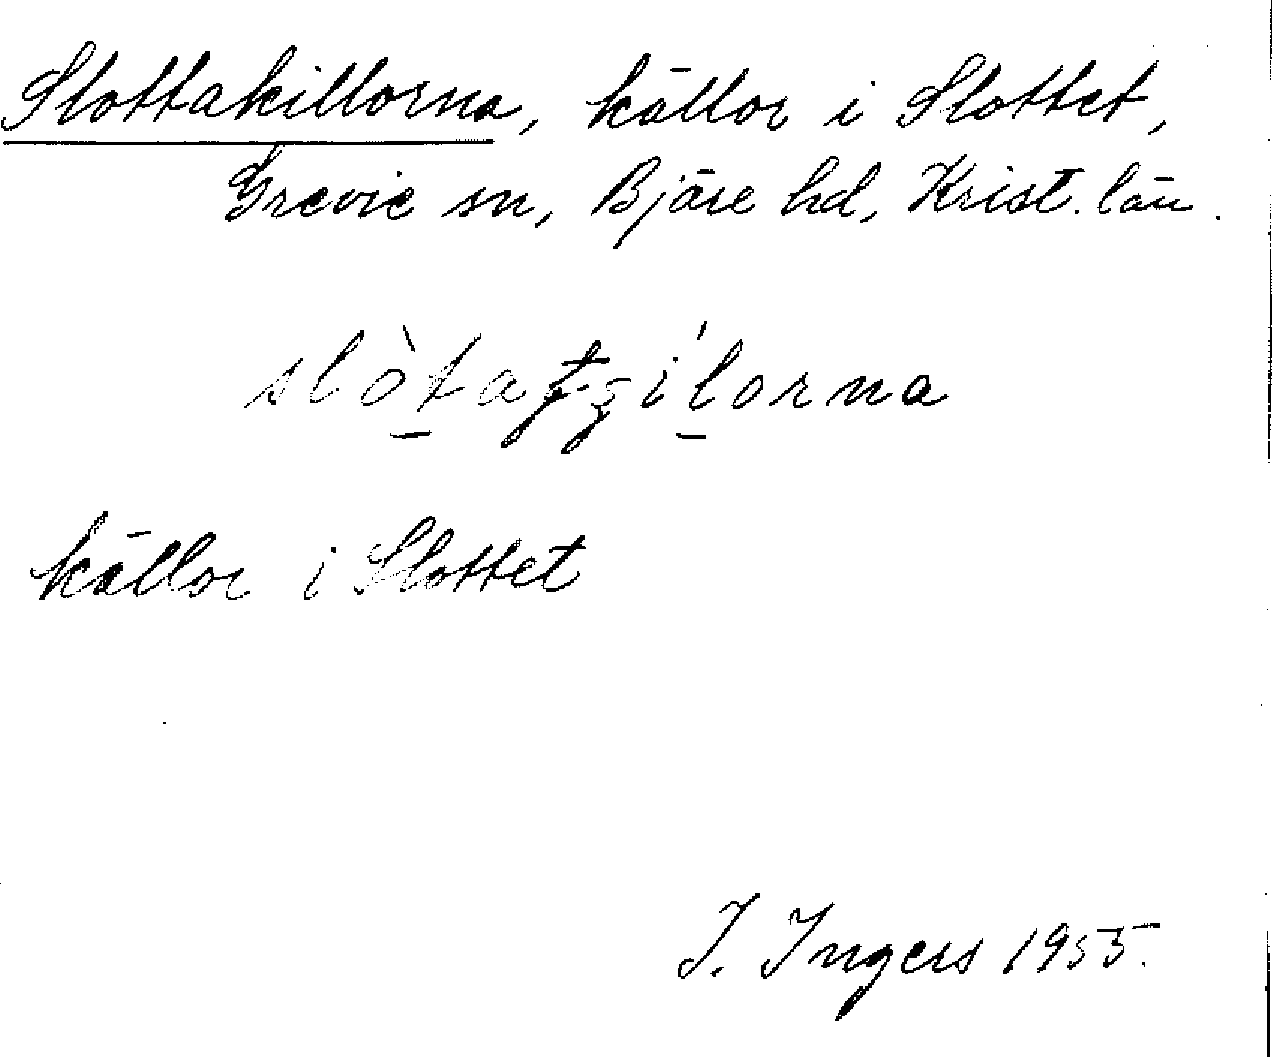 Slottakillorna, källor i Slottet,
Grevie sn, Bjäre hd, Krist. län.
källor i Slottet
I. Ingers 1955.